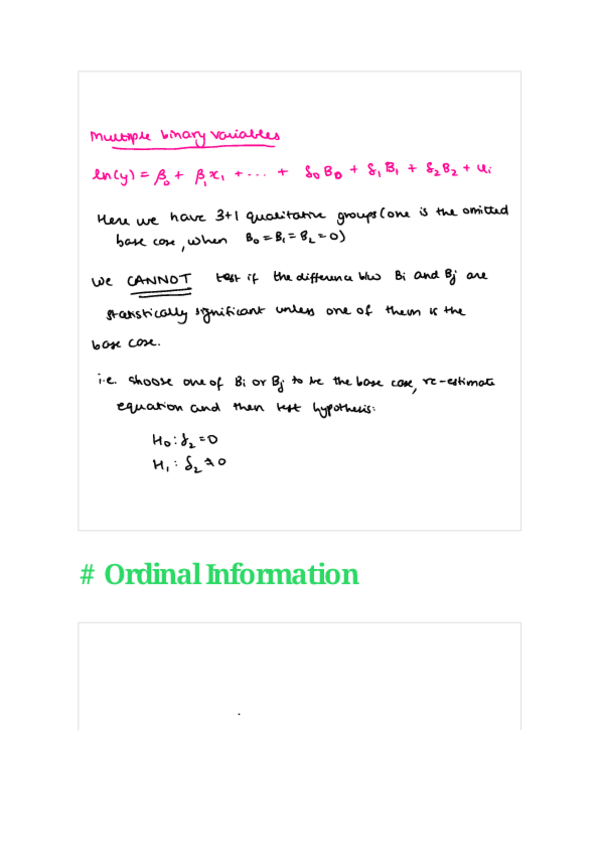 Multiple binary variables
ln(y) = β₀ + β₁x₁ + ... + δ₀B₀ + δ₁B₁ + δ₂B₂ + uᵢ
Here we have 3+1 qualitative groups (one is the omitted
base case, when B₀ = B₁ = B₂ = 0)
We CANNOT test if the difference b/w Bi and Bj are
statistically significant unless one of them is the
base case.
i.e. choose one of Bi or Bj to be the base case, re-estimate
equation and then test hypothesis:
H₀: δ₂ = 0
H₁: δ₂ ≠ 0
# Ordinal Information